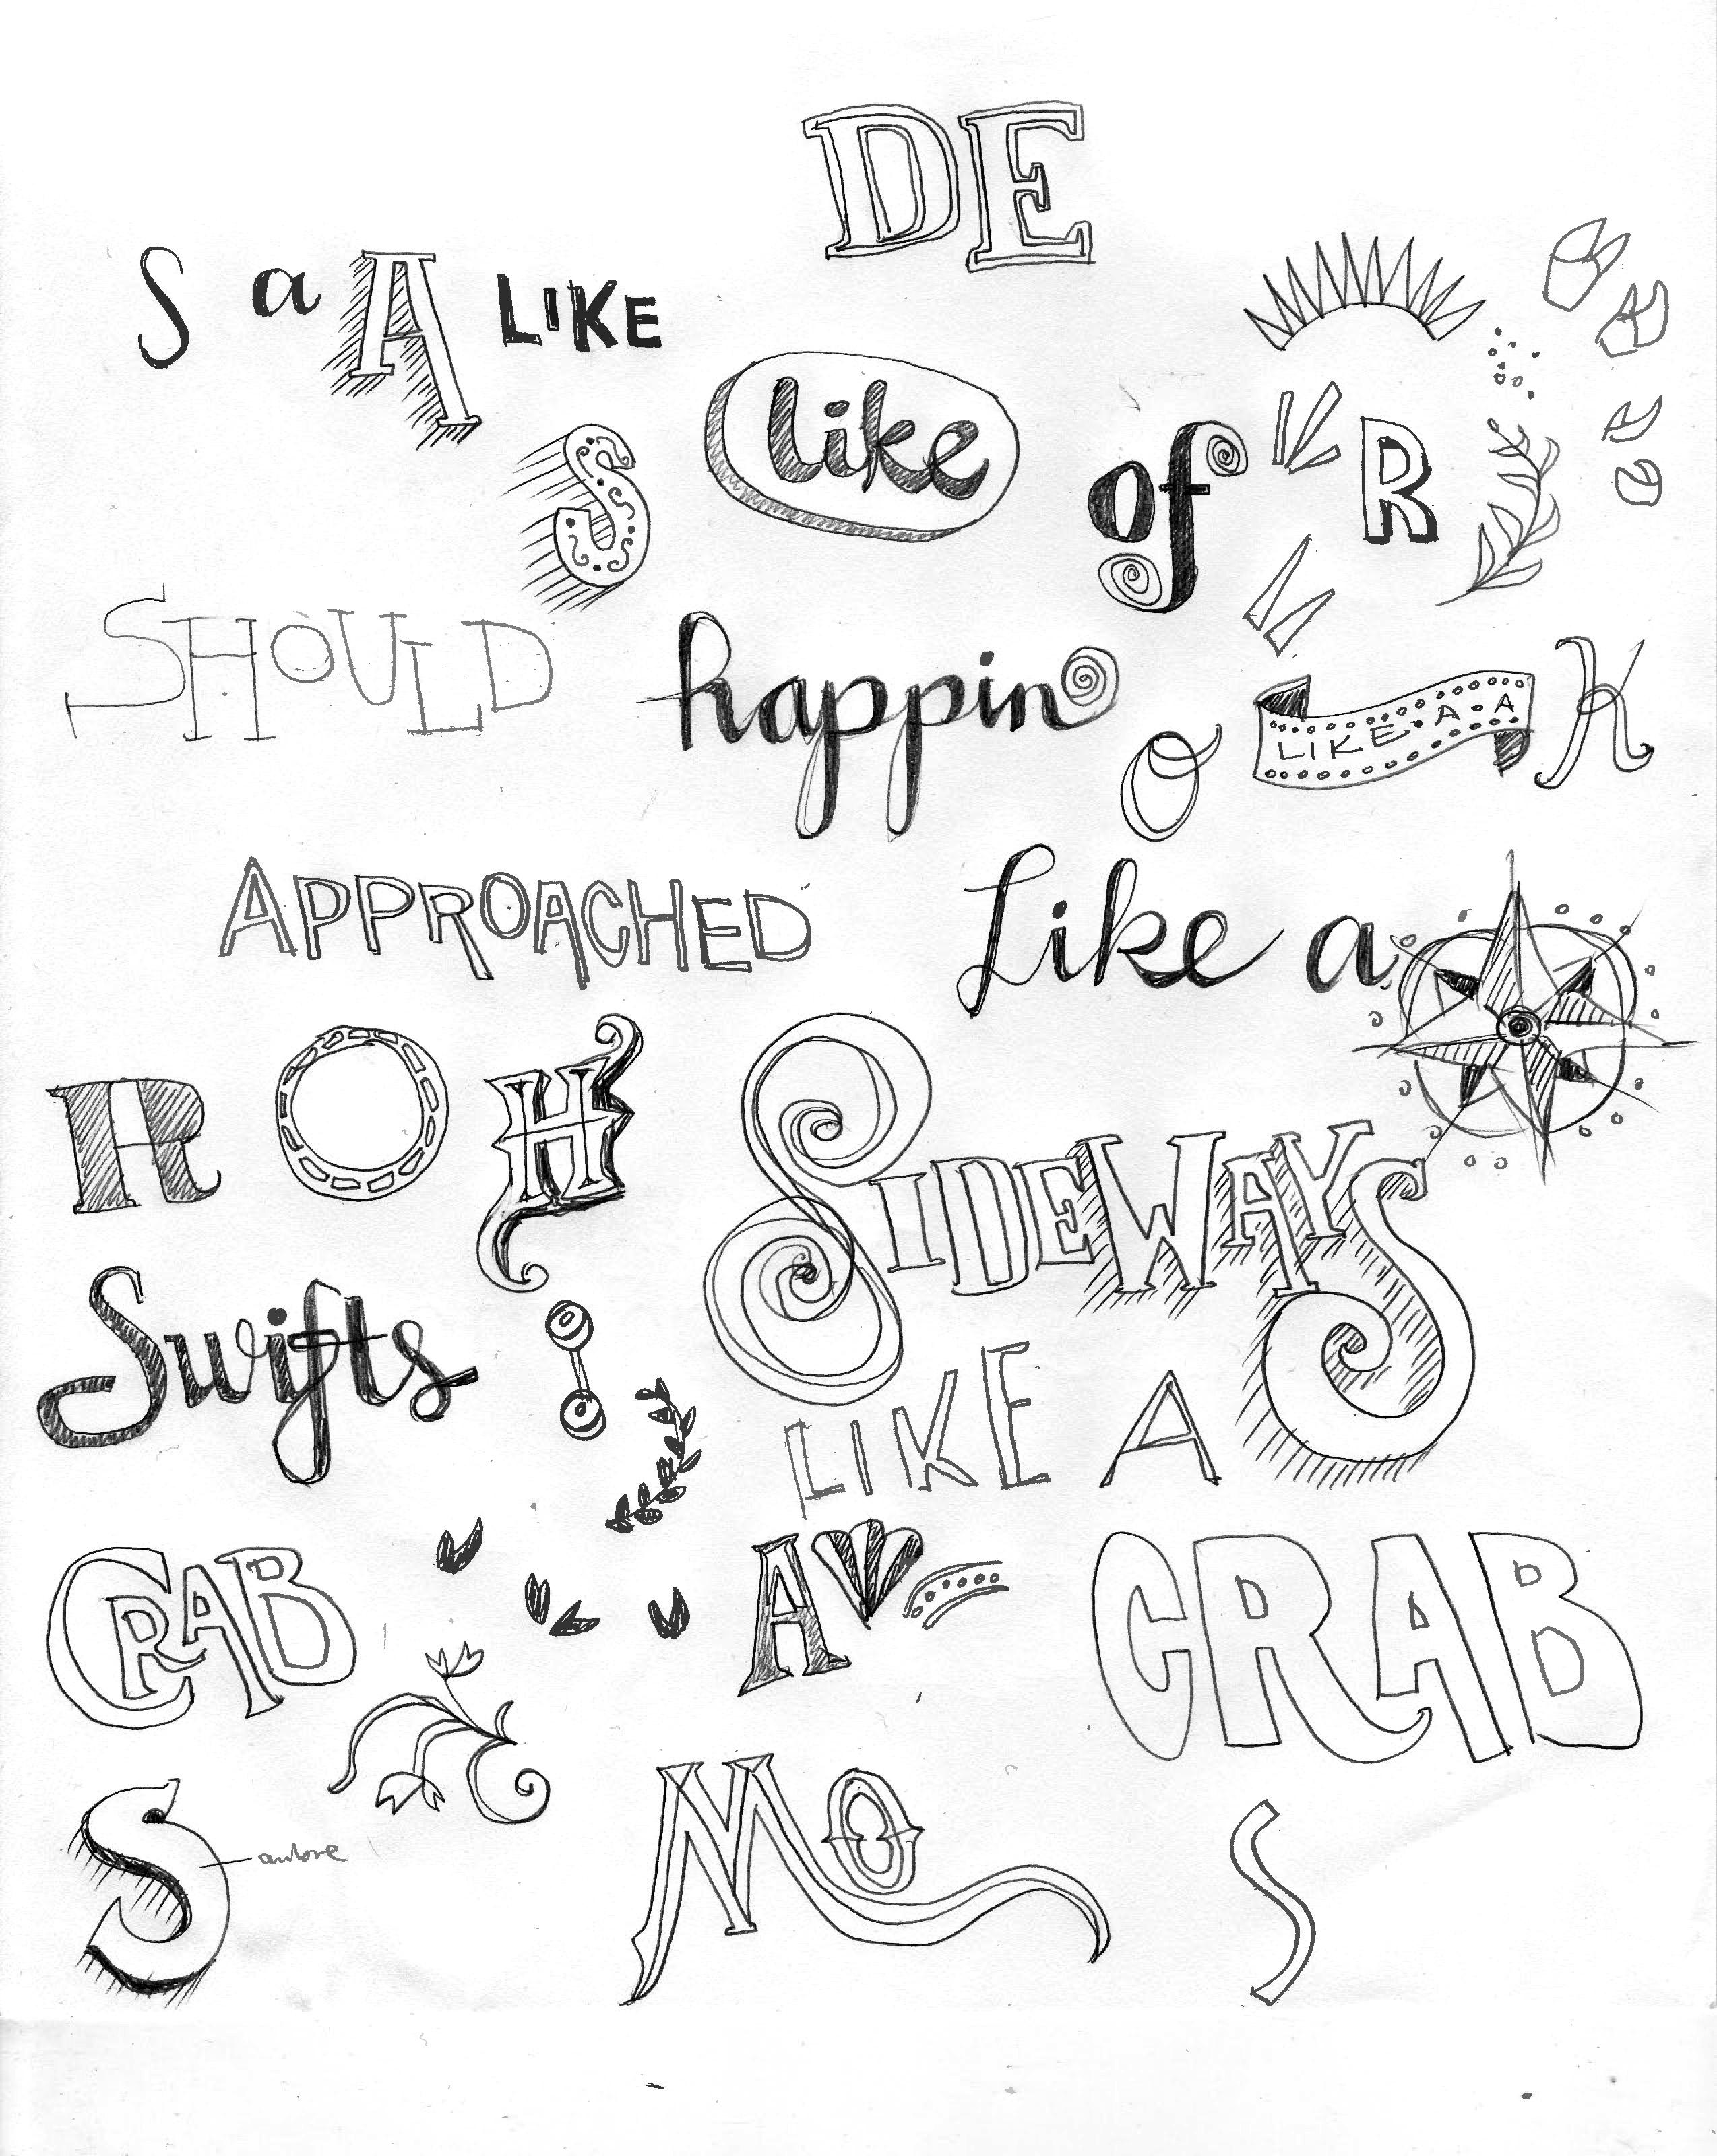 DE
S a A LIKE
S like of R
SHOULD happin
O LIKE·A·A K
APPROACHED Like a
R O H SIDEWAYS
Swifts
LIKE A
CRAB A CRAB
S
MO S